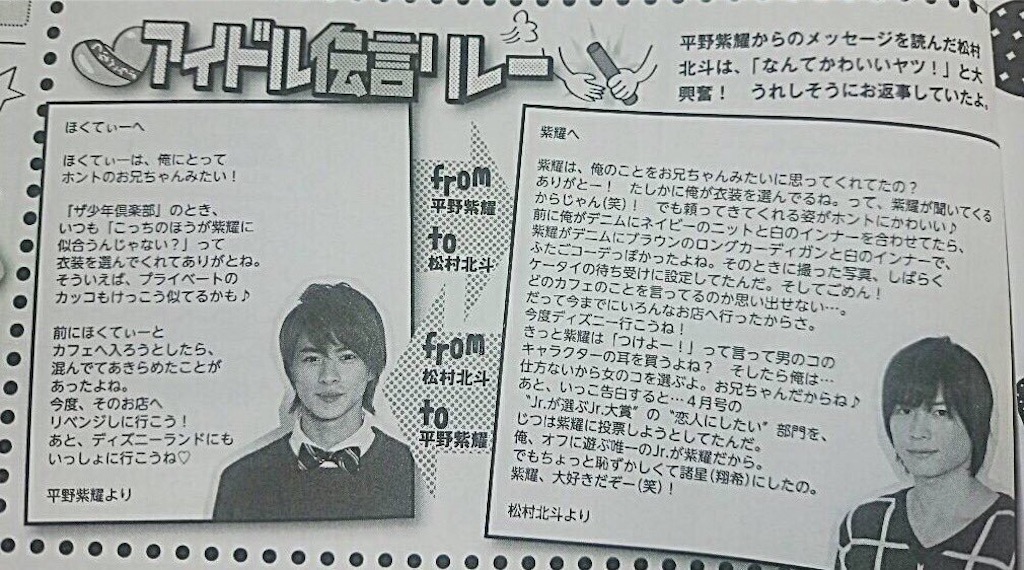 アイドル伝言リレー
平野紫耀からのメッセージを読んだ松村
北斗は、「なんてかわいいヤツ！」と大
興奮！　うれしそうにお返事していたよ。
ほくてぃーへ
ほくてぃーは、俺にとって
ホントのお兄ちゃんみたい！
『ザ少年倶楽部』のとき、
いつも「こっちのほうが紫耀に
似合うんじゃない？」って
衣装を選んでくれてありがとね。
そういえば、プライベートの
カッコもけっこう似てるかも♪
前にほくてぃーと
カフェへ入ろうとしたら、
混んでてあきらめたことが
あったよね。
今度、そのお店へ
リベンジしに行こう！
あと、ディズニーランドにも
いっしょに行こうね♡
平野紫耀より
from
平野紫耀
to
松村北斗
from
松村北斗
to
平野紫耀
紫耀へ
紫耀は、俺のことをお兄ちゃんみたいに思ってくれてたの？
ありがとー！　たしかに俺が衣装を選んでるね。って、紫耀が聞いてくる
からじゃん（笑）！　でも頼ってきてくれる姿がホントにかわいい♪
前に俺がデニムにネイビーのニットと白のインナーを合わせてたら、
紫耀がデニムにブラウンのロングカーディガンと白のインナーで、
ふたごコーデっぽかったよね。そのときに撮った写真、しばらく
ケータイの待ち受けに設定してたんだ。そしてごめん！
どのカフェのことを言ってるのか思い出せない…。
だって今までにいろんなお店へ行ったからさ。
今度ディズニー行こうね！
きっと紫耀は「つけよー！」って言って男のコの
キャラクターの耳を買うよね？　そしたら俺は…
仕方ないから女のコを選ぶよ。お兄ちゃんだからね♪
あと、いっこ告白すると…４月号の
“Jr.が選ぶJr.大賞”の“恋人にしたい”部門を、
じつは紫耀に投票しようとしてたんだ。
俺、オフに遊ぶ唯一のJr.が紫耀だから。
でもちょっと恥ずかしくて諸星（翔希）にしたの。
紫耀、大好きだぞー（笑）！
松村北斗より